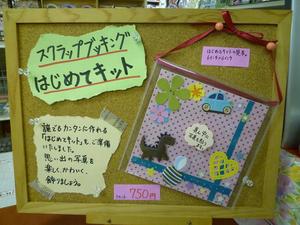 スクラップブッキング
はじめてキット
誰でもカンタンに作れる
「はじめてキット」も、ご準備
いたしました。
思い出の写真を
楽しく、かわいく、
飾りましょう。
750円